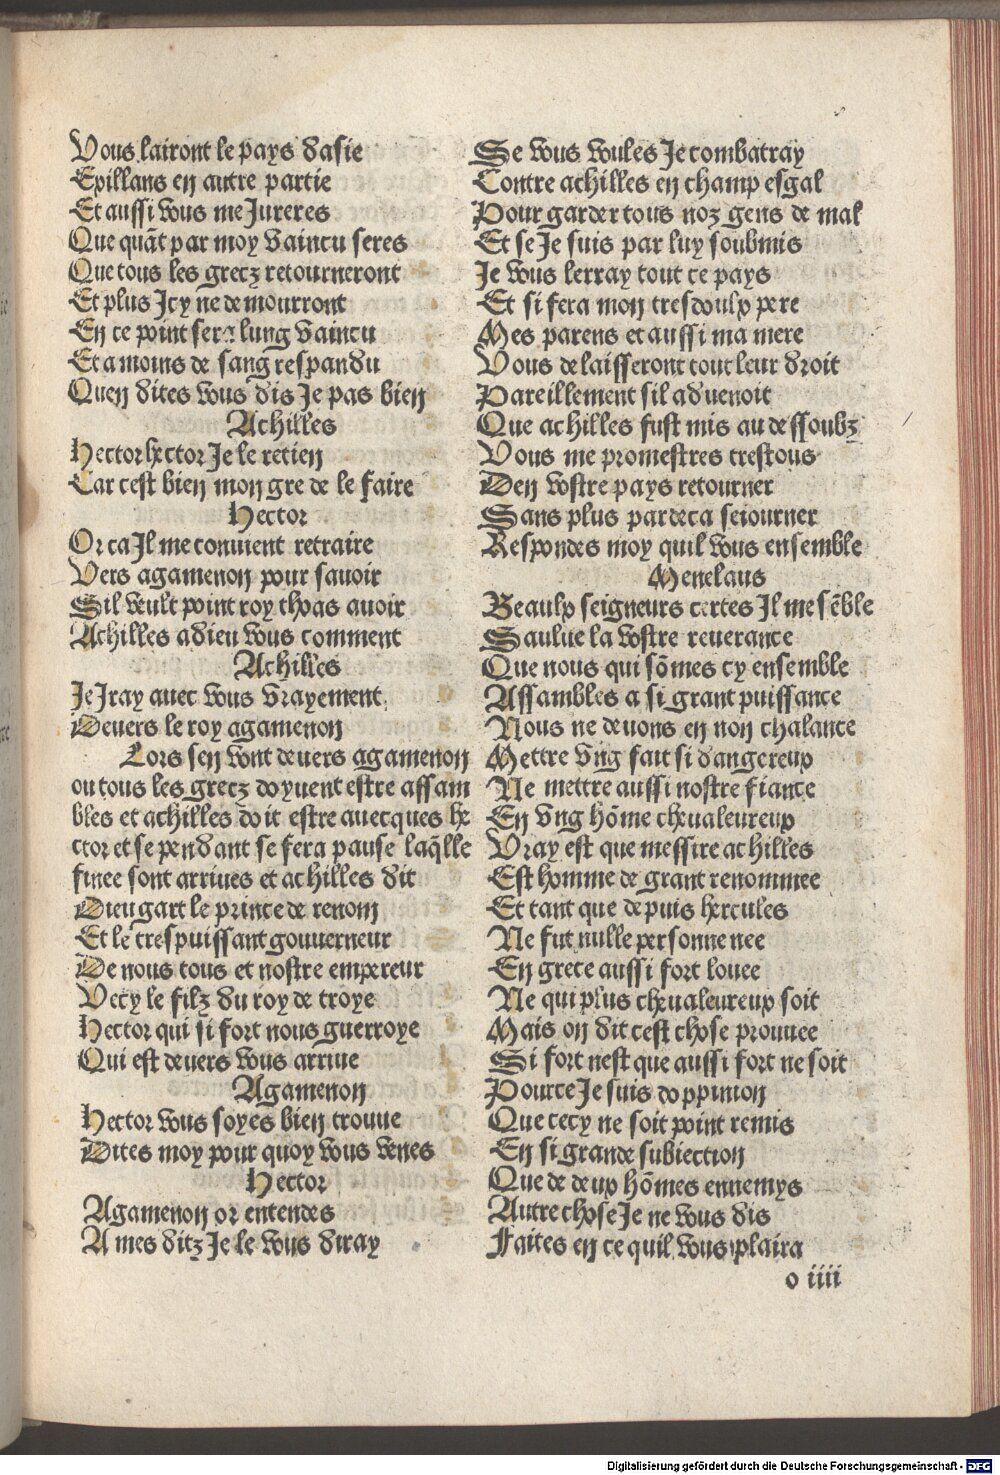 Vous lairont le pays dasie
Epillans en autre partie
Et aussi vous me Jureres
Que quāt par moy vaincu seres
Que tous les grecz retourneront
Et plus Jcy ne demourront
En ce point sera lung vaincu
Et a moins de sang respandu
Quen dites vous dis Je pas bien
Achilles
Hector hector Je le retien
Car cest bien mon gre de le faire
Hector
Or ca Jl me convient retraire
Vers agamenon pour savoir
Sil veult point roy thoas avoir
Achilles adieu vous comment
Achilles
Je Jray avec vous vrayement
Devers le roy agamenon
Lors sen vont devers agamenon
ou tous les grecz doyuent estre assam
bles et achilles doit estre avecques he
ctor et se pendant se fera pause laq̄lle
finee sont arrives et achilles dit
Dieu gart le prince de renom
Et le trespuissant gouverneur
De nous tous et nostre empereur
Vecy le filz du roy de troye
Hector qui si fort nous guerroye
Qui est devers vous arrive
Agamenon
Hector vous soyes bien trouve
Dites moy pour quoy vous venes
Hector
Agamenon or entendes
A mes ditz Je le vous diray
Se vous voules Je combatray
Contre achilles en champ esgal
Pour garder tous noz gens de mal
Et se Je suis par luy soubmis
Je vous lerray tout ce pays
Et si fera mon tresdoulx pere
Mes parens et aussi ma mere
Vous delaisseront tout leur droit
Pareillement sil advenoit
Que achilles fust mis au dessoubz
Vous me promestres trestous
Den vostre pays retourner
Sans plus pardeca seiourner
Respondes moy quil vous ensemble
Menelaus
Beaulx seigneurs certes Jl me sēble
Saulue la vostre reuerance
Que nous qui sōmes cy ensemble
Assambles a si grant puissance
Nous ne devons en non chalance
Mettre vng fait si dangereux
Ne mettre aussi nostre fiance
En vng hōme chevaleureux
Vray est que messire achilles
Est homme de grant renommee
Et tant que depuis hercules
Ne fut nulle personne nee
En grece aussi fort louee
Ne qui plus chevaleureux soit
Mais on dit cest chose prouvee
Si fort nest que aussi fort ne soit
Pource Je suis doppinion
Que cecy ne soit point remis
En si grande subiection
Que de deux hōmes ennemys
Autre chose Je ne vous dis
Faites en ce quil vous plaira
o iiii
Digitalisierung gefördert durch die Deutsche Forschungsgemeinschaft - DFG